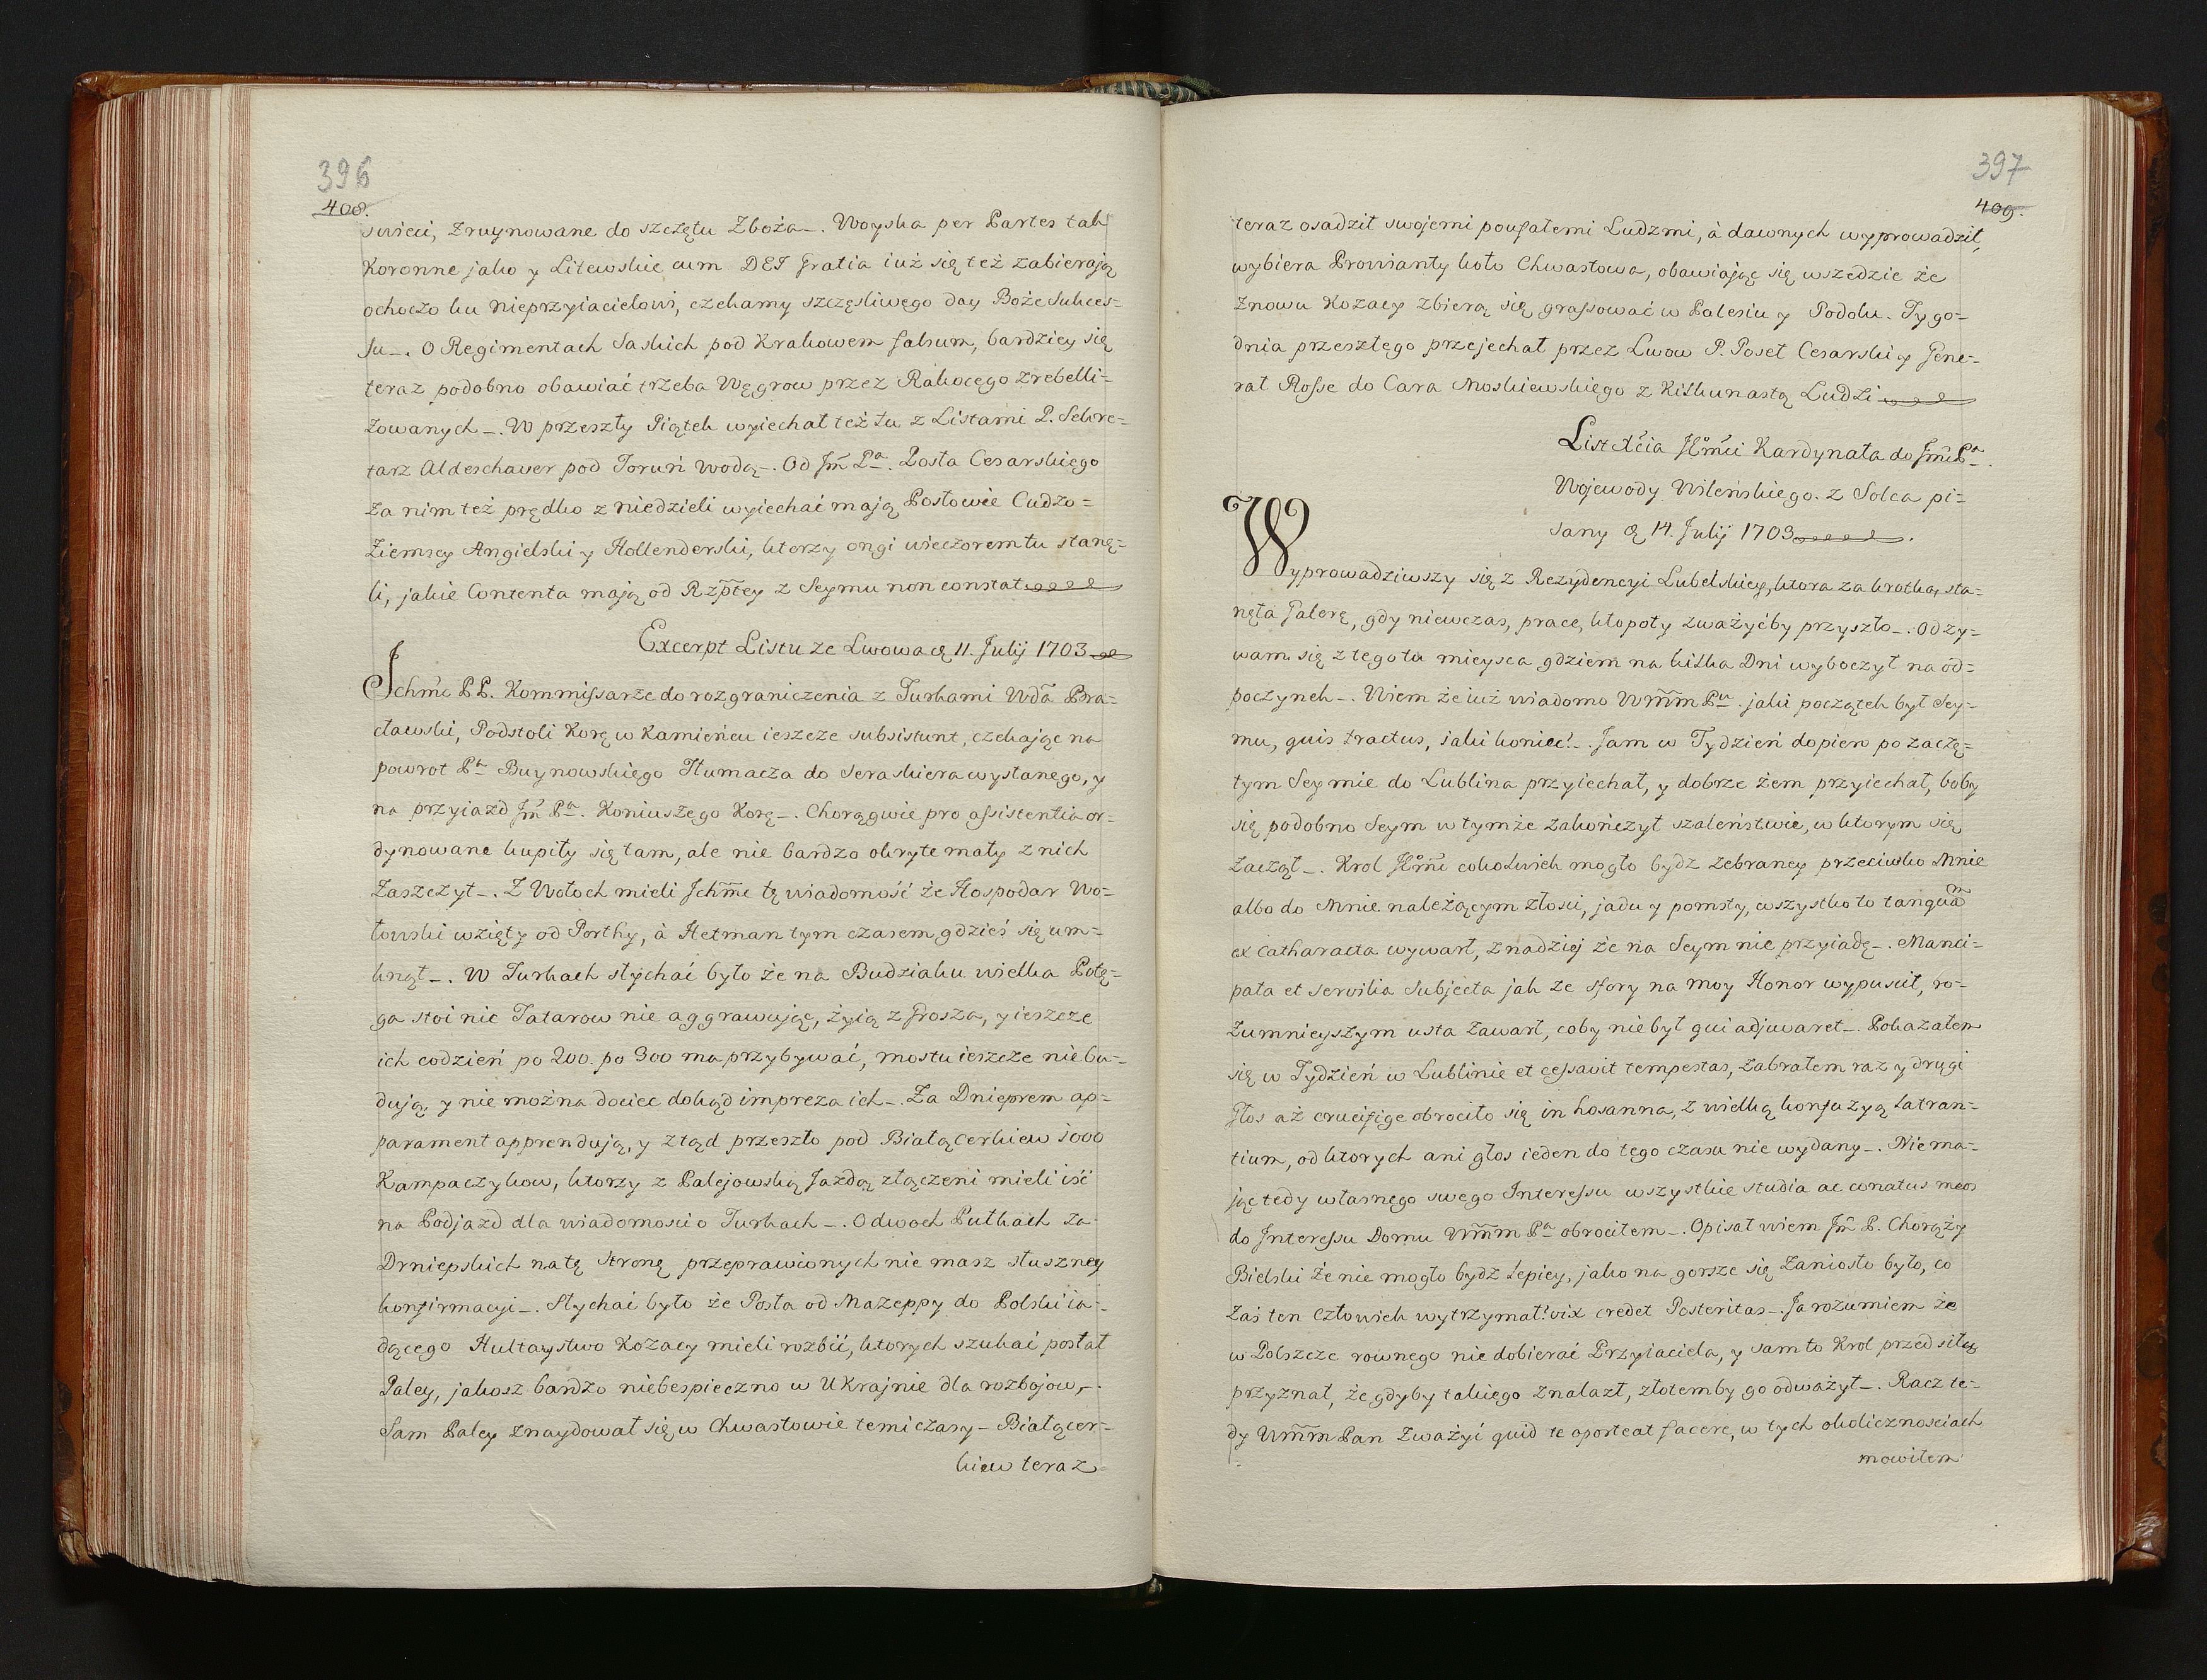 396
408.
swieci, zruynowane do szczętu Zboża_. Woyska per Partes tak
Koronne jako y Litewskie cum DEI Gratia iuż się też zabierają
ochoczo ku nieprzyiacielowi, czekamy szczęsliwego day Boże Sukces=
su_. O Regimentach Saskich pod Krakowem falsum, bardziey się
teraz podobno obawiać trzeba Węgrow przez Rakocego zrebelli=
zowanych_. W przeszły Piątek wyiechał też tu z Listami P. Sekre=
tarz Aldeschauer pod Toruń wodą_. Od Jm̃ Pa. Posła Cesarskiego
za nim też prędko z niedzieli wyiechać mają Posłowie Cudzo=
ziemscy Angielski y Hollenderski, ktorzy ongi wieczorem tu staneę=
li, jakie Contenta mają od Rzp̃tey z Seymu non constat
Excerpt Listu ze Lwowa d. 11. Julij 1703
Ichm̃ć PP. Kommissarze do rozgraniczenia z Turkami Wda Bra=
cławski, Podstoli Korę w Kamieńcu ieszcze subsistunt, czekając na
powrot Pa Buynowskiego Tłumacza do Seraskiera wysłanego, y
na przyiazd Jm̃ Pa. Koniuszego Korę_. Chorągwie pro assistentia or=
dynowane kupiły się tam, ale nie bardzo okryte mały z nich
zaszczyt_. Z Wołoch mieli Jchm̃ć tę wiadomość że Hospodar Wo=
łowski wzięty od Porthy, à Hetman tym czasem gdzieś się um=
knął_. W Turkach słychać było że na Budziaku wielka Potę=
ga stoi nic Tatarow nie aggrawując, żyią z Grosza, y ieszcze
ich codzień po 200. po 300 ma przybywać, mostu ieszcze nie bu=
dują, y nie można dociec dokąd impreza ich_. Za Dnieprem ap=
parament apprendują, y ztąd przeszło pod Białącerkiew 1000
Kampaczykow, ktorzy z Palejowską Jazdą złączeni mieli iść
na Podjazd dla wiadomosci o Turkach_. O dwoch Pułkach Za=
Drniepskich na tę stronę przeprawionych nie masz słuszney
konfirmacyi_. Słychać było że Posła od Mazeppy do Polski ia=
dącego Hultaystwo Kozacy mieli rozbić, ktorych szukać posłał
Paley, jakosz bardzo niebespieczno w Ukrajnie dla rozbojow_.
Sam Paley znaydował się w Chwastowie temi czasy_ Białącer=
kiew teraz
397
409.
teraz osadził swojemi poufałemi Ludzmi, à dawnych wyprowadził,
wybiera Prowianty koło Chwastowa, obawiając się wszędzie że
znowu Kozacy zbierą się grassować w Polesiu y Podolu. Tygo=
dnia przeszłego przejechał przez Lwow P. Poseł Cesarski y Gene=
rał Rosse do Cara Moskiewskiego z Kilkunastą Ludzi
List Xcia JKm̃ci Kardynała do Jm̃ci Pa.
Wojewody Wileńskiego. z Solca pi=
sany d. 14. Julij 1703.
Wyprowadziwszy się z Rezydencyi Lubelskiey, ktora za krotką sta=
nęła Galerę, gdy niewczas, prace, kłopoty zważyćby przyszło_. Odzy=
wam się z tego tu mieysca gdziem na kilka Dni wyboczył na od=
poczynek_. Wiem że iuż wiadomo Wm̃m Pu. jaki początek był Sey=
mu, quis tractus, jaki koniec!_. Jam w Tydzień dopiero po zaczę=
tym Seymie do Lublina przyiechał, y dobrze żem przyiechał, boby
się podobno Seym w tymże zakończył szaleństwie, w ktorym się
zaczął_. Krol JKm̃ć cokolwiek mogło bydz zebraney przeciwko Mnie
albo do Mnie należącym złosci, jadu y pomsty, wszystko to tanquam
ex Catharacta wywarł, z nadziej że na Seym nie przyiadę_. Manci=
pata et servilia Subjecta jak ze sfory na moy Honor wypuscił, ro=
zumnieyszym usta zawarł, coby nie był qui adjuvaret_. Pokazałem
się w Tydzień w Lublinie et cessavit tempestas, zabrałem raz y drugi
głos aż crucifige obrociło się in hosanna, z wielką konfuzyą latran=
tium, od ktorych ani głos ieden do tego czasu nie wydany_. Nie ma=
jąc tedy własnego swego Interessu wszystkie studia ac conatus meos
do Interessu Domu Wm̃m Pa obrociłem_. Opisał wiem Jm̃ P. Chorąży
Bielski że nie mogło bydz lepiey, jako na gorsze się zaniosło było, co
zaś ten człowiek wytrzymał! vix credet Posteritas_. Ja rozumiem że
w Polszcze rownego nie dobierać Przyiaciela, y sam to Krol przed siłą
przyznał, że gdyby takiego znalazł, złotemby go odważył_. Racz te=
dy Wm̃m Pan zważyć quid te oporteat facere, w tych okolicznosciach
mowiłem